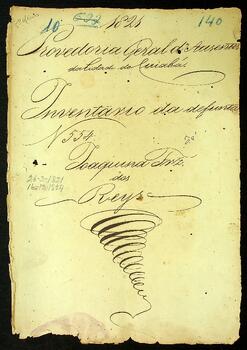 10 1821 140
Provedoria Geral d'Ausentes
da Cidade do Cuiabá
Inventario da defunta
N 554
Joaquina Frz
dos
Reys
26-2-1821